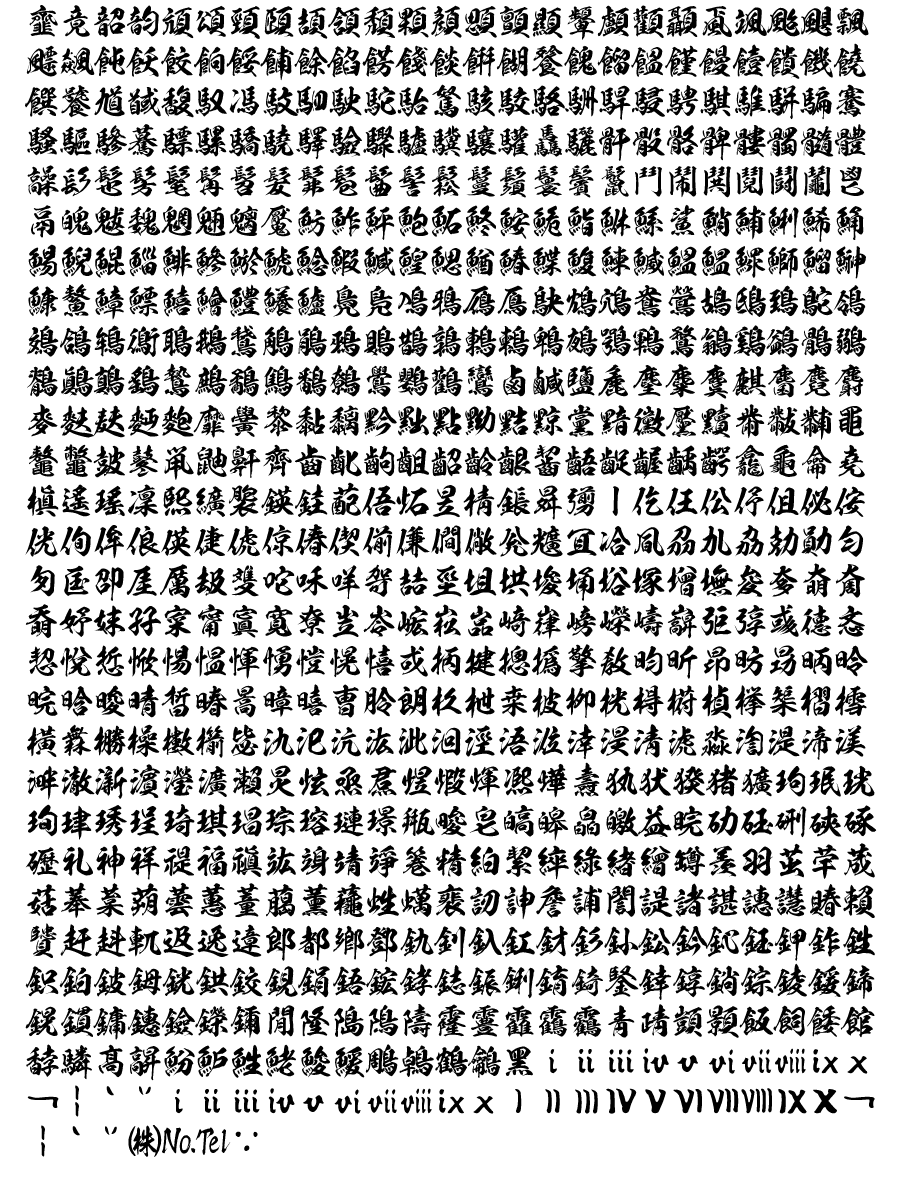 韲竟韶韵頏頌頸頤頡頷頽顆顏顋顫顯顰顱顴顳颪颯颱颶飄
飃飆飩飫餃餉餒餔餘餡餝餞餤餠餬餮餽餾饂饉饅饐饋饑饒
饌饕馗馘馥馭馮馼駟駛駝駘駑駭駮駱駲駻駸騁騏騅駢騙騫
騷驅驂驀驃騾驕驍驛驗驟驢驥驤驩驫驪骭骰骼髀髏髑髓體
髞髟髢髣髦髯髫髮髴髱髷髻鬆鬘鬚鬟鬢鬣鬥鬧鬨鬩鬪鬮鬯
鬲魄魃魏魍魎魑魘魴鮓鮃鮑鮖鮗鮟鮠鮨鮴鯀鯊鮹鯆鯏鯑鯒
鯣鯢鯤鯔鯡鰺鯲鯱鯰鰕鰔鰉鰓鰌鰆鰈鰒鰊鰄鰮鰛鰥鰤鰡鰰
鱇鰲鱆鰾鱚鱠鱧鱶鱸鳧鳬鳰鴉鴈鳫鴃鴆鴪鴦鶯鴣鴟鵄鴕鴒
鵁鴿鴾鵆鵈鵝鵞鵤鵑鵐鵙鵲鶉鶇鶫鵯鵺鶚鶤鶩鶲鷄鷁鶻鶸
鶺鷆鷏鷂鷙鷓鷸鷦鷭鷯鷽鸚鸛鸞鹵鹹鹽麁麈麋麌麒麕麑麝
麥麩麸麪麭靡黌黎黏黐黔黜點黝黠黥黨黯黴黶黷黹黻黼黽
鼇鼈皷鼕鼡鼬鼾齊齒齔齣齟齠齡齦齧齬齪齷齲齶龕龜龠堯
槇遙瑤凜熙纊褜鍈銈蓜俉炻昱棈鋹曻彅丨仡仼伀伃伹佖侒
侊侚侔俍偀倢俿倞偆偰偂傔僴僘兊兤冝冾凬刕劜劦勀勛匀
匇匤卲厓厲叝﨎咜咊咩哿喆坙坥垬埈埇﨏塚增墲夋奓奛奝
奣妤妺孖寀甯寘寬尞岦岺峵崧嵓﨑嵂嵭嶸嶹巐弡弴彧德忞
恝悅悊惞惕愠惲愑愷愰憘戓抦揵摠撝擎敎昀昕昻昉昮昞昤
晥晗晙晴晳暙暠暲暿曺朎朗杦枻桒柀栁桄棏﨓楨﨔榘槢樰
橫橆橳橾櫢櫤毖氿汜沆汯泚洄涇浯涖涬淏淸淲淼渹湜渧渼
溿澈澵濵瀅瀇瀨炅炫焏焄煜煆煇凞燁燾犱犾猤猪獷玽珉珖
珣珒琇珵琦琪琩琮瑢璉璟甁畯皂皜皞皛皦益睆劯砡硎硤硺
礰礼神祥禔福禛竑竧靖竫箞精絈絜綷綠緖繒罇羡羽茁荢荿
菇菶葈蒴蕓蕙蕫﨟薰蘒﨡蠇裵訒訷詹誧誾諟諸諶譓譿賰賴
贒赶﨣軏﨤逸遧郞都鄕鄧釚釗釞釭釮釤釥鈆鈐鈊鈺鉀鈼鉎
鉙鉑鈹鉧銧鉷鉸鋧鋗鋙鋐﨧鋕鋠鋓錥錡鋻﨨錞鋿錝錂鍰鍗
鎤鏆鏞鏸鐱鑅鑈閒隆﨩隝隯霳霻靃靍靏靑靕顗顥飯飼餧館
馞驎髙髜魵魲鮏鮱鮻鰀鵰鵫鶴鸙黑ⅰⅱⅲⅳⅴⅵⅶⅷⅸⅹ
¬¦'"ⅰⅱⅲⅳⅴⅵⅶⅷⅸⅹⅠⅡⅢⅣⅤⅥⅦⅧⅨⅩ¬
¦'"㈱№℡∵